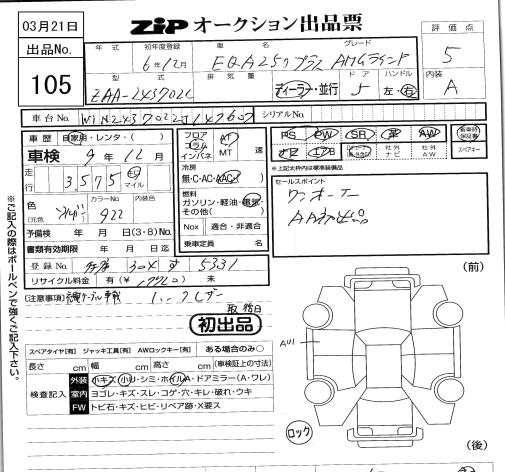 03月21日
ZIP オークション出品票
評価点
5
出品No.
105
年式 初年度登録 車名 グレード
6年12月 EQA250プラス AMGライン
型式 排気量 ドア ハンドル
ZAA-243702C ディーラー・並行 5 左・右
内装
A
車台No. シリアルNo.
車歴 自家用・レンタ・( )
車検 9年12月
走行 3,575 km マイル
色 (元色 カラーNo. 922 内装色
予備検 年 月 日(3・8)No.
書類有効期限 年 月 日迄
登録No. 304 す 5331
リサイクル料金 有( )未
フロア コラム インパネ AT MT 速
冷房 無・C・AC・AAC
燃料 ガソリン・軽油・電気・その他( )
Nox 適合・非適合
乗車定員 名
PS PW SR 革 AW 新車時保証書
社外ナビ 社外AW スペアキー
※上記太枠内は標準装備品
セールスポイント
ワンオーナー
AA初出品
(注意事項)
初出品
スペアタイヤ[有] ジャッキ工具[有] AWロックキー[有] ある場合のみ○
長さ cm 幅 cm 高さ cm (車検証上の寸法)
検査記入
外装 小キズ・小U・シミ・ホイルA・ドアミラー(A・ワレ)
室内 ヨゴレ・キズ・スレ・コゲ・穴・キレ・破れ・ウキ
FW トビ石・キズ・ヒビ・リペア跡・X要ス
※ご記入の際はボールペンで強くご記入下さい。
(前)
AU1
ロック
(後)